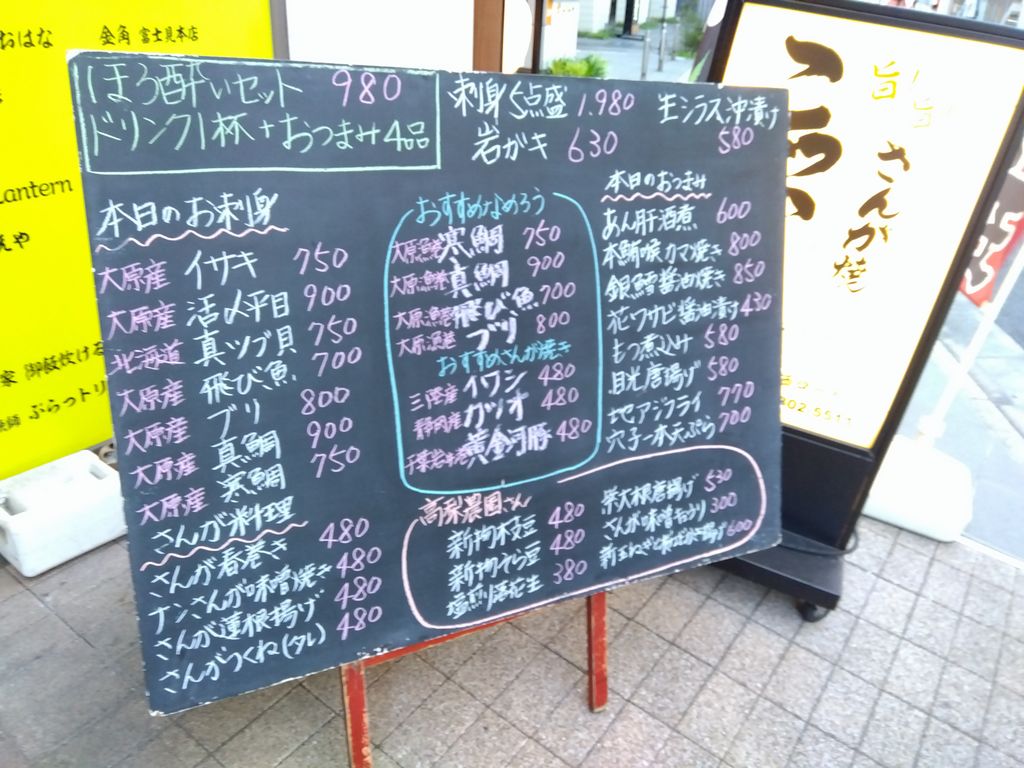 おはな 金角 富士見本店
Lantern
家 御飯炊け
ぶらっトリ
ほろ酔いセット 980
ドリンク1杯+おつまみ4品
刺身5点盛 1.980
岩ガキ 630
生シラス沖漬け
580
本日のお刺身
大原産 イサキ 750
大原産 活〆平目 900
北海道 真ツブ貝 750
大原産 飛び魚 700
大原産 ブリ 800
大原産 真鯛 900
大原産 寒鯛 750
さんが料理
さんが春巻き 480
ナンさんが味噌焼き 480
さんが蓮根揚げ 480
さんがつくね(タレ) 480
おすすめなめろう
大原漁港 寒鯛 750
大原漁港 真鯛 900
大原漁港 飛び魚 700
大原漁港 ブリ 800
おすすめさんが焼き
三陸産 イワシ 480
静岡産 カツオ 480
千葉岩井港 黄金河豚 480
本日のおつまみ
あん肝酒煮 600
本鮪喉カマ焼き 800
銀鱈醤油焼き 850
花ワサビ醤油漬け 430
もつ煮込み 580
目光唐揚げ 580
地アジフライ 770
穴子一本天ぷら 700
高梨農園さん
新物木又豆 480
480
塩煎り落花生 380
紫大根唐揚げ 530
さんが味噌キュウリ 300
600
旨い旨い
さんが焼
802-5511